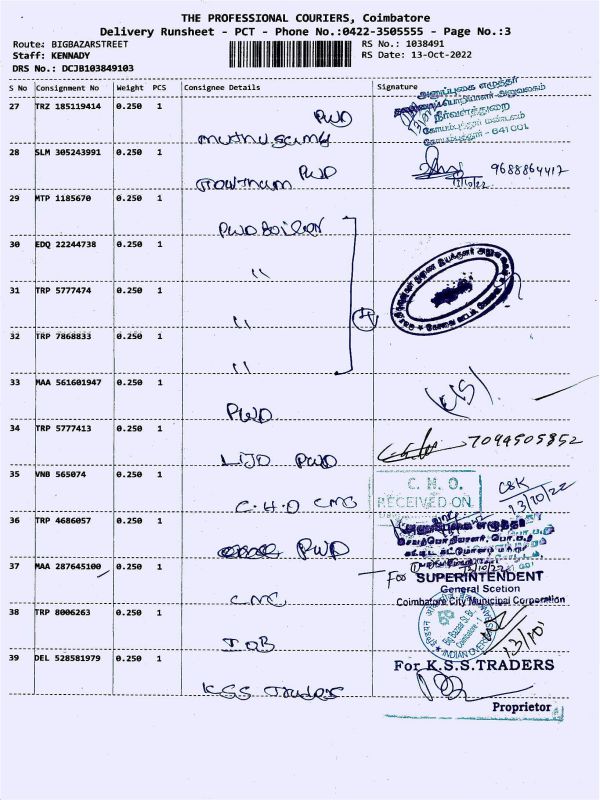 THE PROFESSIONAL COURIERS, Coimbatore
Delivery Runsheet - PCT - Phone No.:0422-3505555 - Page No.:3
Route: BIGBAZARSTREET
RS No.: 1038491
Staff: KENNADY
RS Date: 13-Oct-2022
DRS No.: DCJB103849103
S No Consignment No Weight PCS Consignee Details Signature
27 TRZ 185119414 0.250 1 PWD
muthusamy
அனுப்புகை எழுத்தர்
கோயம்புத்தூர் மண்டலம்
கோயம்புத்தூர் - 641 001
28 SLM 305243991 0.250 1 PWD
Gowtham
9688864417
13/10/22
29 MTP 1185670 0.250 1
30 EDQ 22244738 0.250 1 "
31 TRP 5777474 0.250 1 "
32 TRP 7868833 0.250 1 "
4
33 MAA 561601947 0.250 1 PWD
34 TRP 5777413 0.250 1 LIJO PWD
7094505852
35 VNB 565074 0.250 1 C.H.O CMC
C. H. O.
RECEIVED ON
C&K
13/10/22
36 TRP 4686057 0.250 1 PWD
அனுப்புகை எழுத்தர்
13/10/22
37 MAA 287645100 0.250 1 CMC
For SUPERINTENDENT
General Scetion
Coimbatore City Municipal Corporation
38 TRP 8006263 0.250 1 IOB
Big Bazaar St. Br.
Coimbatore - 1
INDIAN OVERSEAS BANK
13/10/
39 DEL 528581979 0.250 1 KSS Traders
For K.S.S.TRADERS
Proprietor